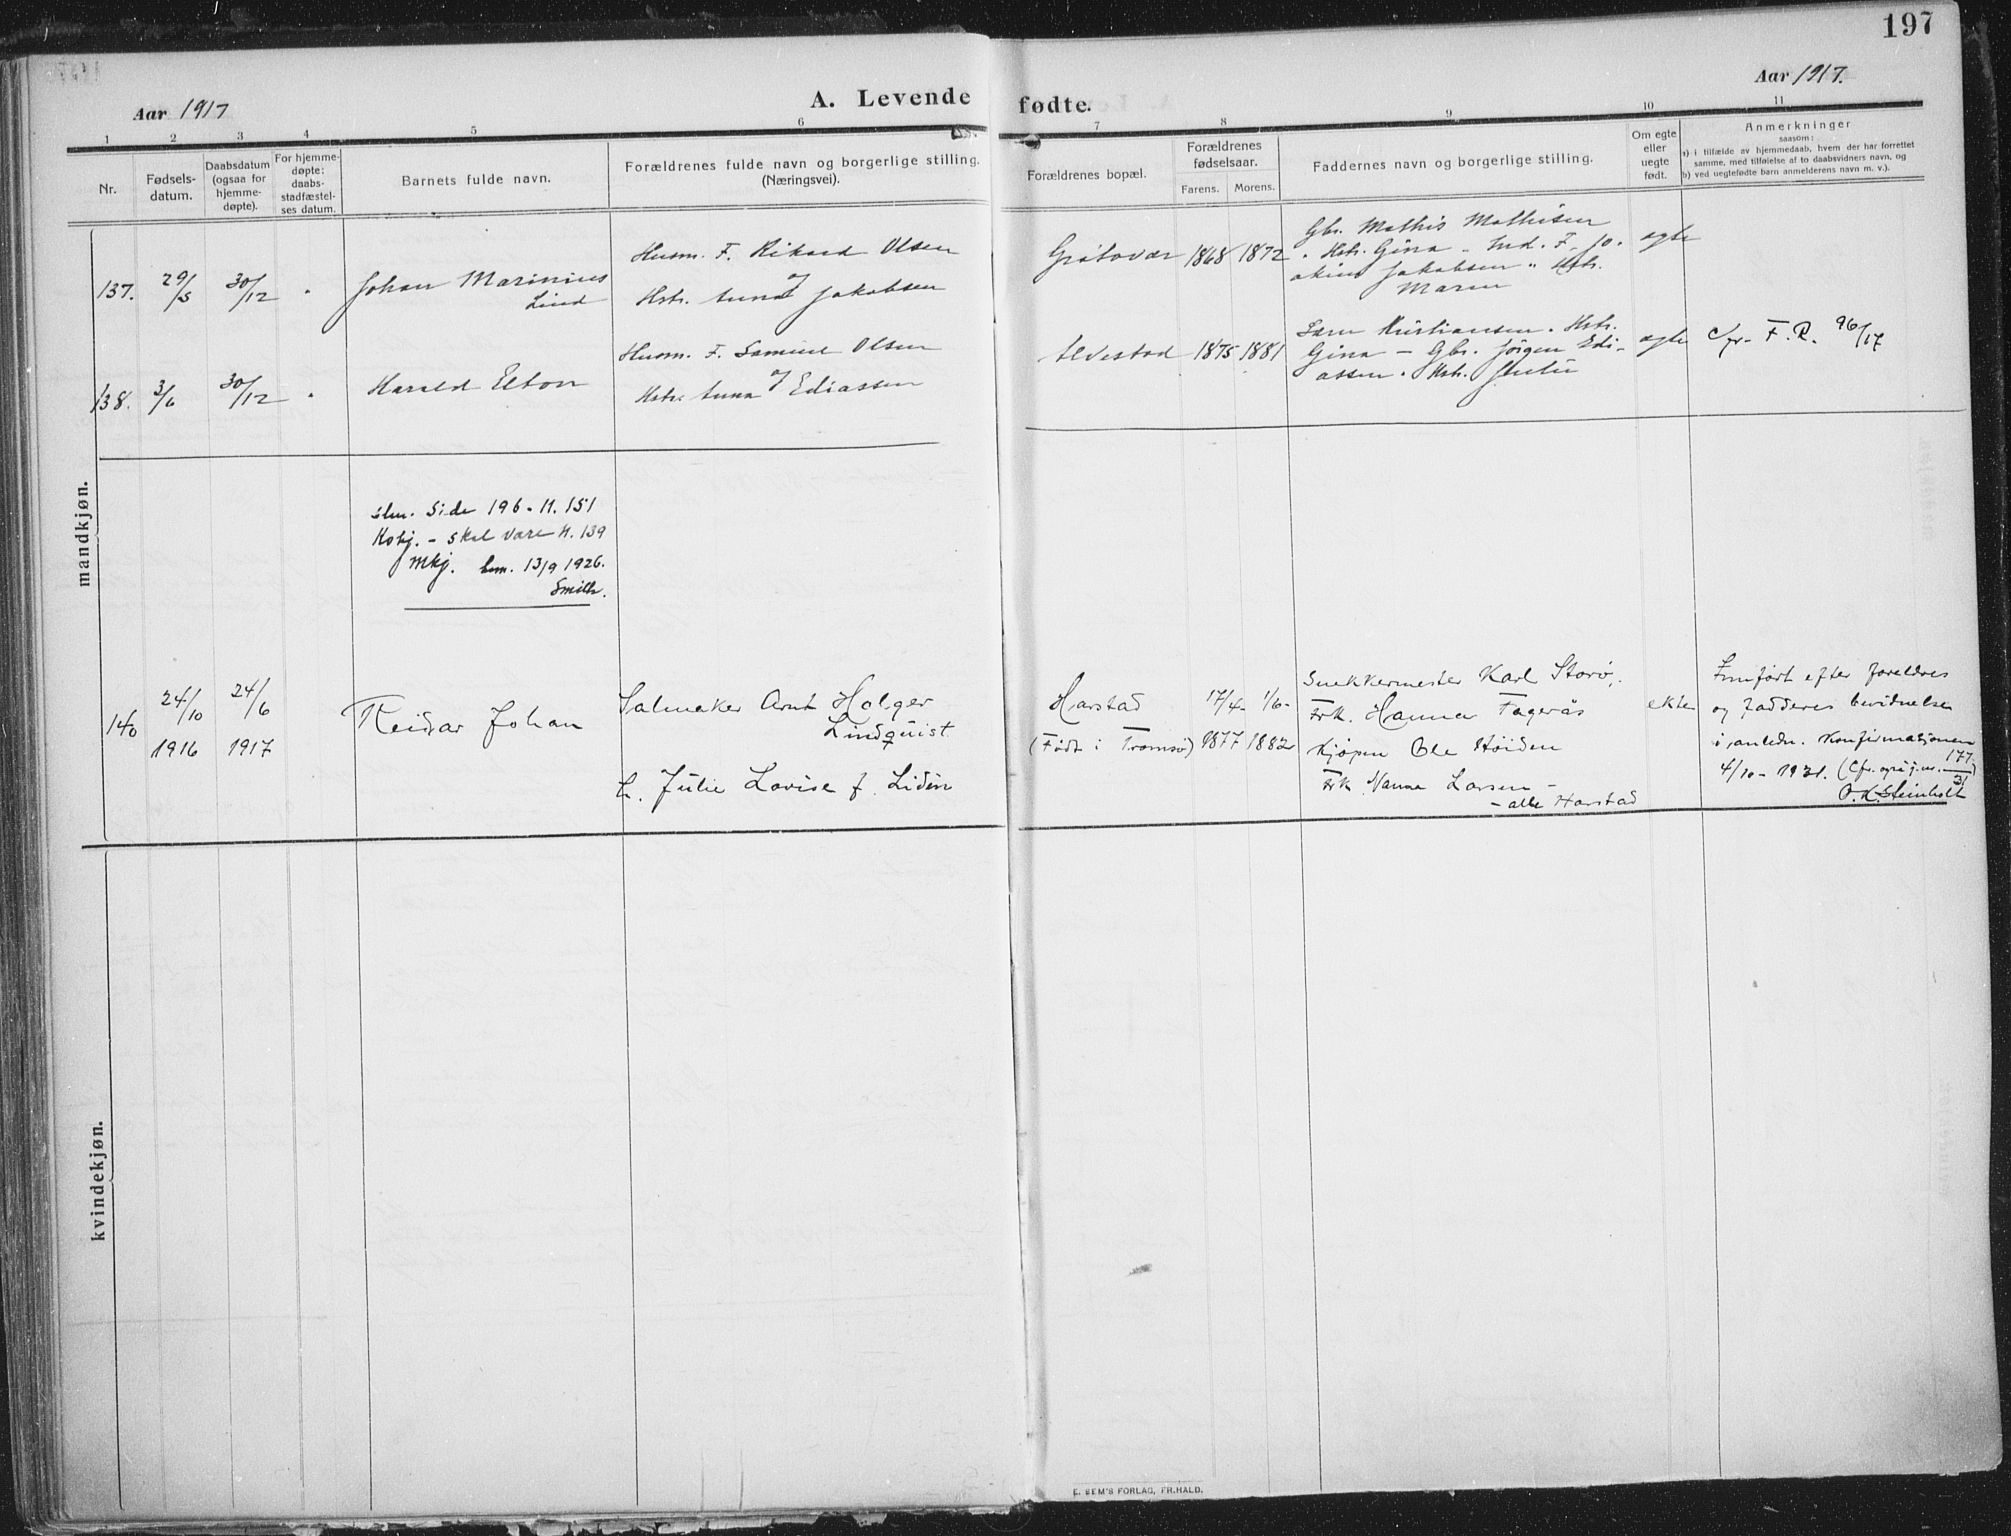 197
Aar 1917
A. Levende fødte.
Aar 1917.
1 2 3 4 5 6 7 8 9 10 11
Nr.
Fødsels-
datum.
Daabsdatum
(ogsaa for
hjemme-
døpte).
For hjemme-
døpte:
daabs-
stadfæstel-
ses datum.
Barnets fulde navn.
Forældrenes fulde navn og borgerlige stilling.
(Næringsvei).
Forældrenes bopæl.
Forældrenes
fødselsaar.
Farens. Morens.
Faddernes navn og borgerlige stilling.
Om egte
eller
uegte
født.
Anmerkninger
saasom:
a) i tilfælde av hjemmedaab, hvem der har forrettet
samme, med tilføielse af to daabsvidners navn, og
b) ved uegtefødte barn anmelderens navn m. v.).
mandkjøn.
137. 29/5 30/12 "
Johan Marinius
Lind
Husm. F. Rikard Olsen
Hstr. Anna f Jakobsen
Grøtavær 1868 1872
Gbr. Mathis Mathisen
" Hstr. Gina - Ind. F. Jo-
akim Jakobsen " Hstr.
Maren
egte
138. 3/6 30/12 "
Harald Elton
Husm. F. Samuel Olsen
Hstr. Anna f Ediassen
Alvestad 1875 1881
Kristiansen. Hstr.
Gina - Gbr. Jørgen Edi-
assen. Hstr.
egte
Cfr. F. R. 96/17
Side 196 - N. 151
Kvkj. - skal være N. 139
Mkj. 13/9 1926.
Smith.
140 24/10 1916 24/6 1917
Reidar Johan
Salmaker Arnt Holger
Lindquist
h. Julie Lovise f. Lidén
Harstad
(Født i Tromsø)
17/4- 1877 1/6- 1882
Snekkermester Karl Storø,
Frk. Hanna Fagerås
Kjøpm Ole Høiden
Frk Nanna Larsen -
- alle Harstad
ekte
Innført efter foreldres
og fadderes bevidnelse
i anledn. konfirmasjonen
4/10 - 1931. (Cfr. også j.nr. 177/31)
O. K. Steinholt
kvindekjøn.
E. SEM'S FORLAG, FR.HALD.